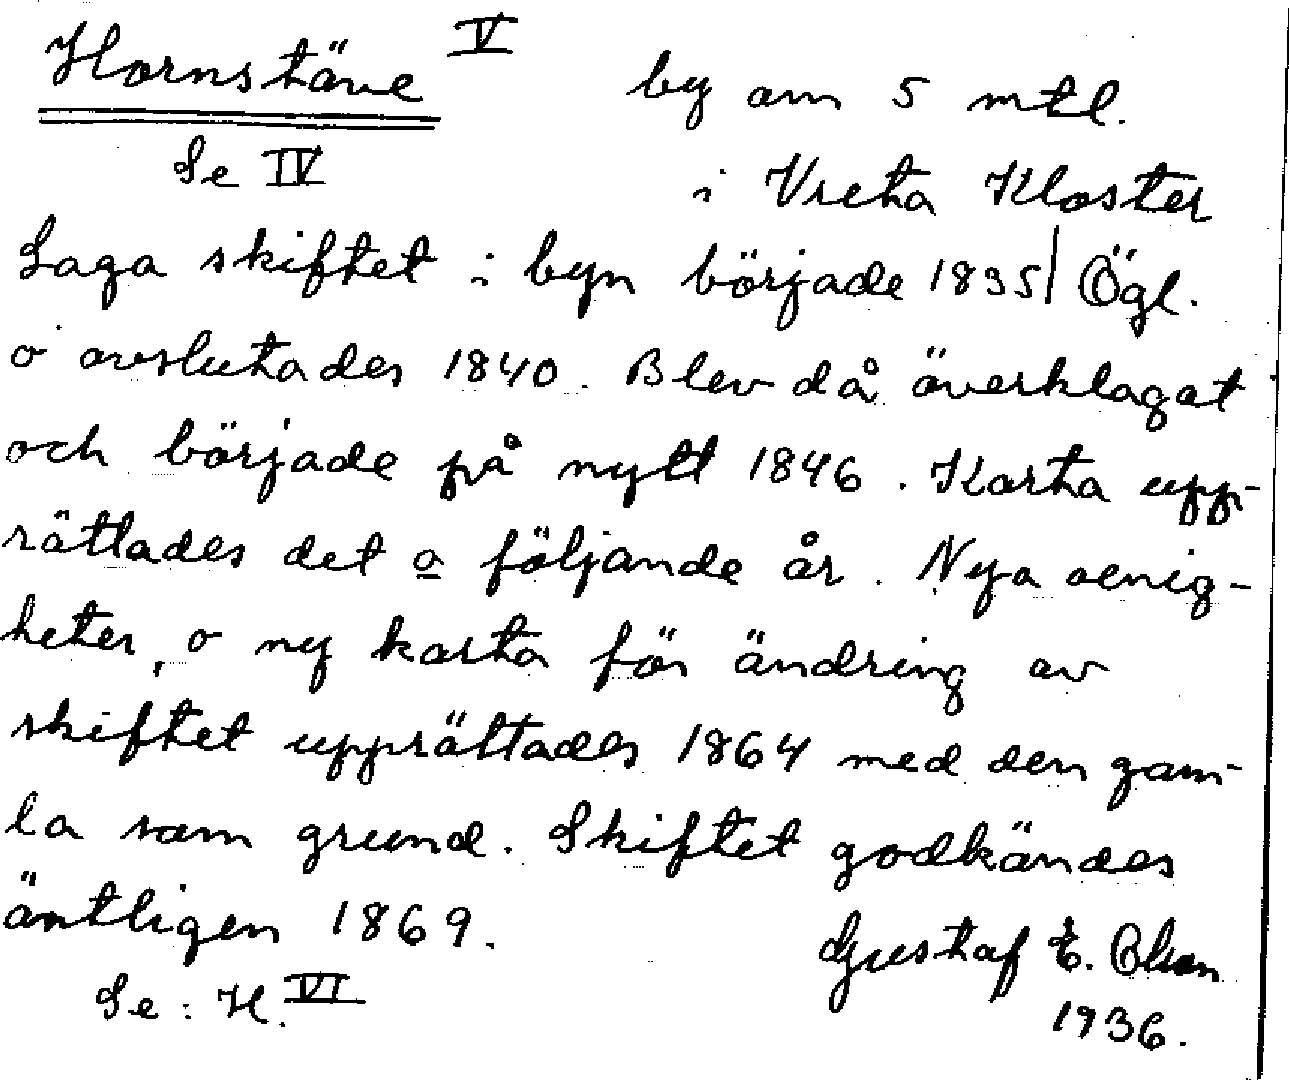 Hornstäve V by om 5 mtl.
Se IV i Vreta Kloster
Laga skiftet i byn började 1835 | Ögl.
o avslutades 1840. Blev då överklagat
och började på nytt 1846. Karta upp-
rättades det o följande år. Nya oenig-
heter, o ny karta för ändring av
skiftet upprättades 1864 med den gam-
la som grund. Skiftet godkändes
äntligen 1869.
Gustaf E. Olson
Se: H. VI
1936.